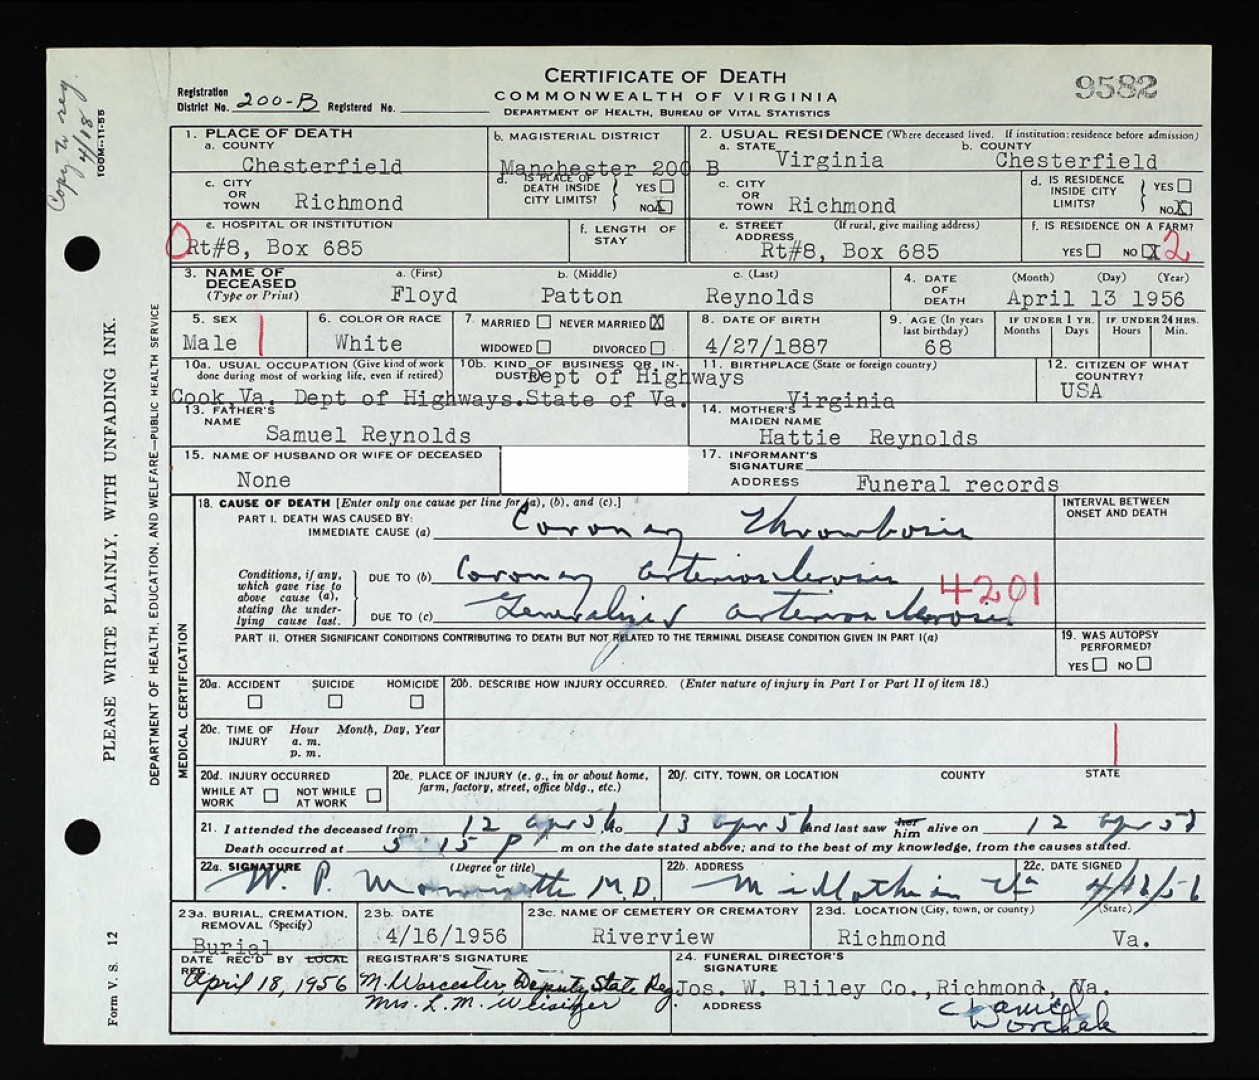 Copy to reg.
4/18
100M--11-55
PLEASE WRITE PLAINLY, WITH UNFADING INK.
DEPARTMENT OF HEALTH, EDUCATION, AND WELFARE—PUBLIC HEALTH SERVICE
Form V. S. 12
CERTIFICATE OF DEATH
COMMONWEALTH OF VIRGINIA
DEPARTMENT OF HEALTH, BUREAU OF VITAL STATISTICS
9582
Registration District No. 200-B Registered No.
1. PLACE OF DEATH
a. COUNTY
Chesterfield
b. MAGISTERIAL DISTRICT
Manchester 200 B
2. USUAL RESIDENCE (Where deceased lived. If institution: residence before admission)
a. STATE Virginia
b. COUNTY
Chesterfield
c. CITY OR TOWN Richmond
d. IS PLACE OF DEATH INSIDE CITY LIMITS? YES NO X
c. CITY OR TOWN Richmond
d. IS RESIDENCE INSIDE CITY LIMITS? YES NO X
e. HOSPITAL OR INSTITUTION
0 Rt#8, Box 685
f. LENGTH OF STAY
e. STREET ADDRESS (If rural, give mailing address)
Rt#8, Box 685
f. IS RESIDENCE ON A FARM?
YES NO X 2
3. NAME OF DECEASED (Type or Print)
a. (First) Floyd
b. (Middle) Patton
c. (Last) Reynolds
4. DATE OF DEATH (Month) (Day) (Year)
April 13 1956
5. SEX
Male 1
6. COLOR OR RACE
White
7. MARRIED NEVER MARRIED X
WIDOWED DIVORCED
8. DATE OF BIRTH
4/27/1887
9. AGE (In years last birthday)
68
IF UNDER 1 YR. Months Days
IF UNDER 24 HRS. Hours Min.
10a. USUAL OCCUPATION (Give kind of work done during most of working life, even if retired)
Cook Va. Dept of Highways.
10b. KIND OF BUSINESS OR INDUSTRY
Dept of Highways
State of Va.
11. BIRTHPLACE (State or foreign country)
Virginia
12. CITIZEN OF WHAT COUNTRY?
USA
13. FATHER'S NAME
Samuel Reynolds
14. MOTHER'S MAIDEN NAME
Hattie Reynolds
15. NAME OF HUSBAND OR WIFE OF DECEASED
None
17. INFORMANT'S SIGNATURE
ADDRESS Funeral records
MEDICAL CERTIFICATION
18. CAUSE OF DEATH [Enter only one cause per line for (a), (b), and (c).]
INTERVAL BETWEEN ONSET AND DEATH
PART I. DEATH WAS CAUSED BY:
IMMEDIATE CAUSE (a) Coronary Thrombosis
Conditions, if any, which gave rise to above cause (a), stating the underlying cause last.
DUE TO (b) Coronary arteriosclerosis
4201
DUE TO (c) Generalized arteriosclerosis
PART II. OTHER SIGNIFICANT CONDITIONS CONTRIBUTING TO DEATH BUT NOT RELATED TO THE TERMINAL DISEASE CONDITION GIVEN IN PART I(a)
19. WAS AUTOPSY PERFORMED?
YES NO
20a. ACCIDENT SUICIDE HOMICIDE
20b. DESCRIBE HOW INJURY OCCURRED. (Enter nature of injury in Part I or Part II of item 18.)
20c. TIME OF INJURY Hour Month, Day, Year
a. m.
p. m.
20d. INJURY OCCURRED
WHILE AT WORK NOT WHILE AT WORK
20e. PLACE OF INJURY (e. g., in or about home, farm, factory, street, office bldg., etc.)
20f. CITY, TOWN, OR LOCATION COUNTY STATE
21. I attended the deceased from 12 apr 56, to 13 apr 56 and last saw her him alive on 12 apr 56
Death occurred at 5:15 P m on the date stated above; and to the best of my knowledge, from the causes stated.
22a. SIGNATURE (Degree or title)
W. P. M.D.
22b. ADDRESS
Midlothian Va
22c. DATE SIGNED
4/18/56
23a. BURIAL, CREMATION, REMOVAL (Specify)
Burial
23b. DATE
4/16/1956
23c. NAME OF CEMETERY OR CREMATORY
Riverview
23d. LOCATION (City, town, or county) (State)
Richmond Va.
DATE REC'D BY LOCAL REG.
April 18, 1956
REGISTRAR'S SIGNATURE
M. Worcester Deputy State Reg
Mrs. L. M. Weisiger
24. FUNERAL DIRECTOR'S SIGNATURE
Jos. W. Bliley Co., Richmond, Va.
ADDRESS